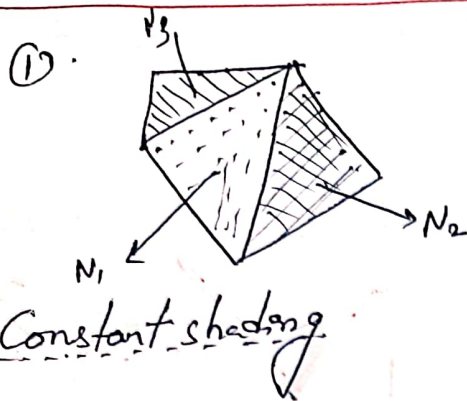 N3
①.
N2
N1
Constant shading